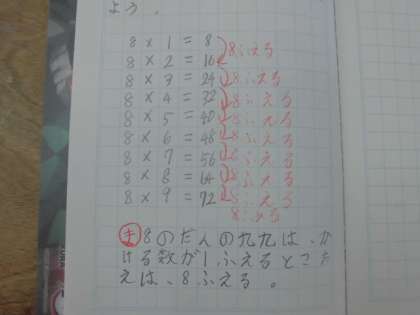 よう。
8 × 1 = 8
8ふえる
8 × 2 = 16
8ふえる
8 × 3 = 24
8ふえる
8 × 4 = 32
8ふえる
8 × 5 = 40
8ふえる
8 × 6 = 48
8ふえる
8 × 7 = 56
8ふえる
8 × 8 = 64
8ふえる
8 × 9 = 72
8ふえる
ま 8のだんの九九は、か
ける数が1ふえるとこた
えは、8ふえる。